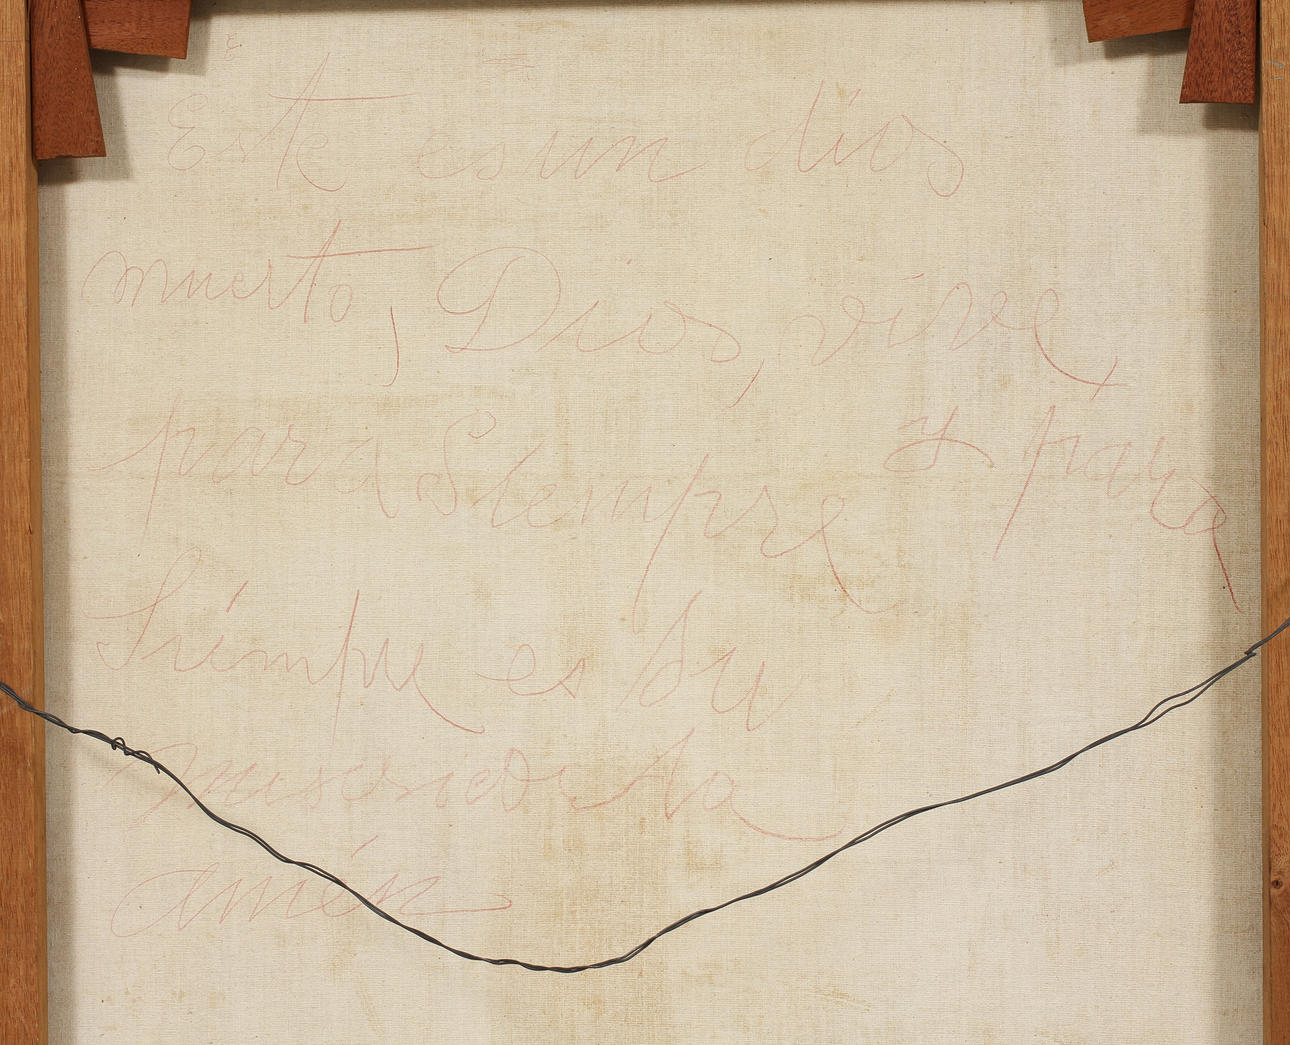 Este es un dios
muerto, Dios, vive,
para siempre y para
siempre es su
misericordia
amén